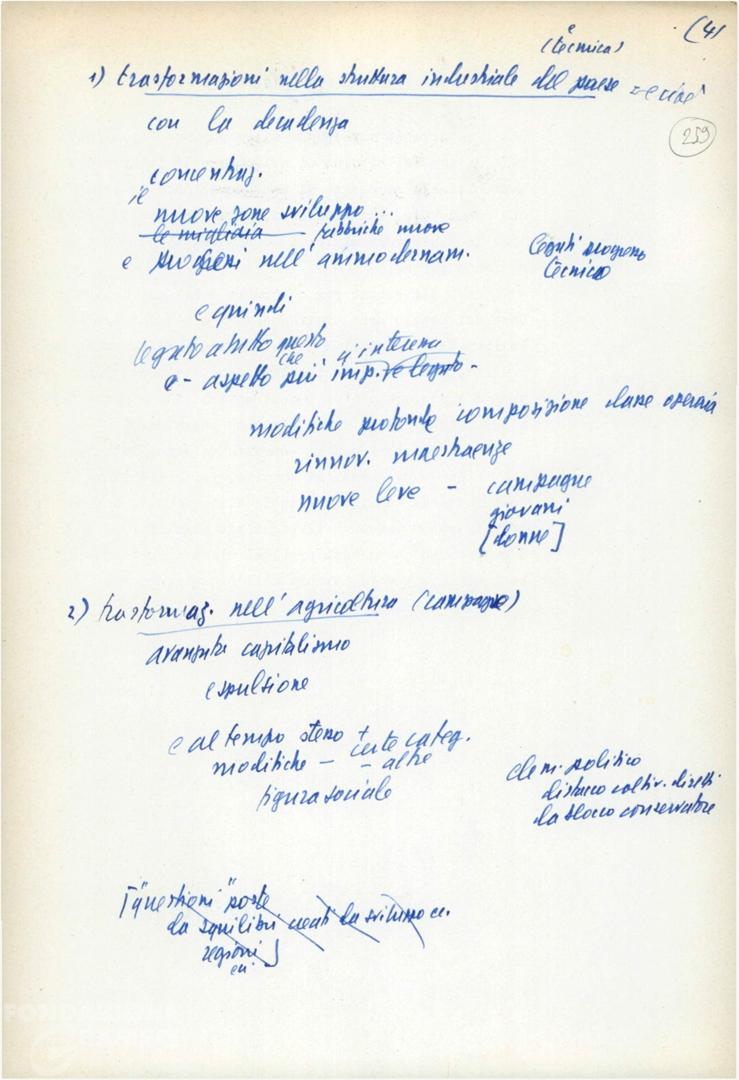 (4)
e
(tecnica)
1) trasformazioni nella struttura industriale del paese
259
con la decadenza
concentraz.
nuove zone sviluppo...
fabbriche nuove
e nell'ammodernam.
tecnico
e quindi
legato a tutto questo
che
e - aspetto più imp. -
modifiche profonde composizione classe operaia
rinnov. maestranze
nuove leve - campagne
giovani
[donne]
2) trasformaz. nell'agricoltura (campagne)
avanzata capitalismo
espulsione
e al tempo stesso + certe categ.
modifiche - - altre
figura sociale
elem. politico
distacco coltiv. diretti
da blocco conservatore
["questioni" poste
da squilibri creati da sviluppo ec.
regioni]
FONDAZIONE